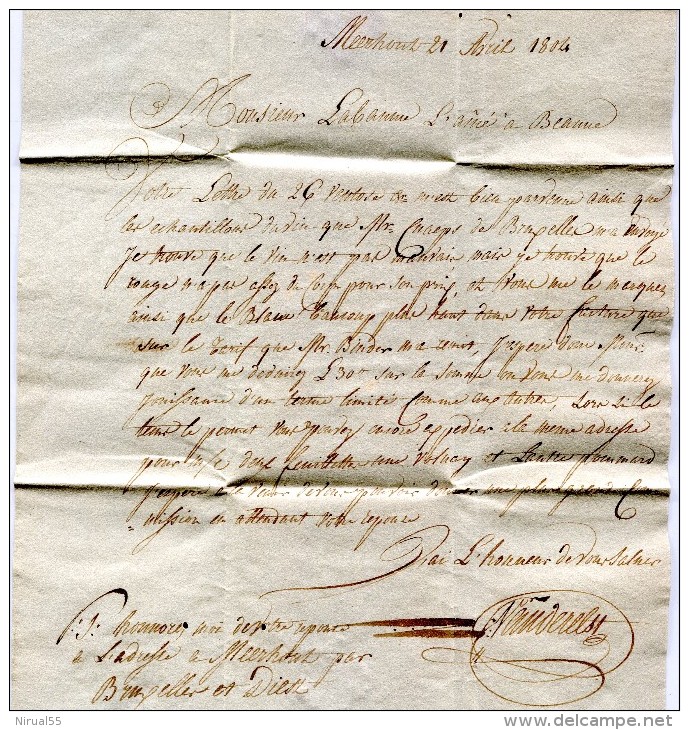 Meerhout 21 Avril 1804
Monsieur Labaume L'ainé a Beaune
Votre Lettre du 26 Ventose m'est bien parvenue ainsi que
les echantillons du vin que Mr. Cnaeps de Bruxelles m'a envoye
Je trouve que le vin n'est pas mauvais mais je trouve que le
rouge n'a pas assez de Corp pour son prix, et Vous me le marquez
ainsi que le Blanc beaucoup plus haut dans votre facture que
sur le tarif que Mr. Binder m'a remis, J'espere donc Monsr.
que vous me deduirez £ 30 sur la somme ou vous me donnerez
jouissance d'un terme limité comme aux autres,
tems le permet vous pouvez encore expedier a la meme adresse
pour deux feuillette une Volnay et L'autre Pommard
J'espere a la vous pouvoir donner une plus grande Com
=mission en attendant votre reponce
J'ai L'honneur de vous saluer
P:S: honnorez moi de votre reponce
a L'adresse a Meerhout par
Bruxelles et Diest
Nirual55
www.delcampe.net